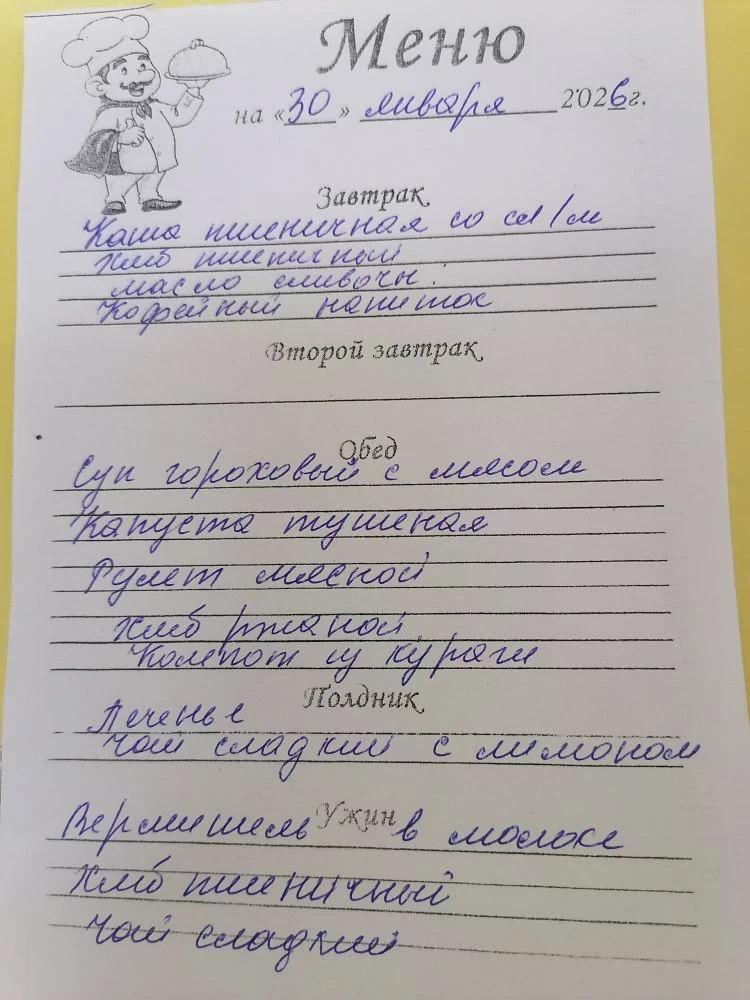 Меню
на «30» января 2026г.
Завтрак
Каша пшеничная со сл/м
Хлеб пшеничный
масло сливочн.
Кофейный напиток
Второй завтрак
Обед
Суп гороховый с мясом
Капуста тушеная
Рулет мясной
Хлеб ржаной
Компот из кураги
Полдник
Печенье
Чай сладкий с лимоном
Ужин
Вермишель в молоке
Хлеб пшеничный
Чай сладкий